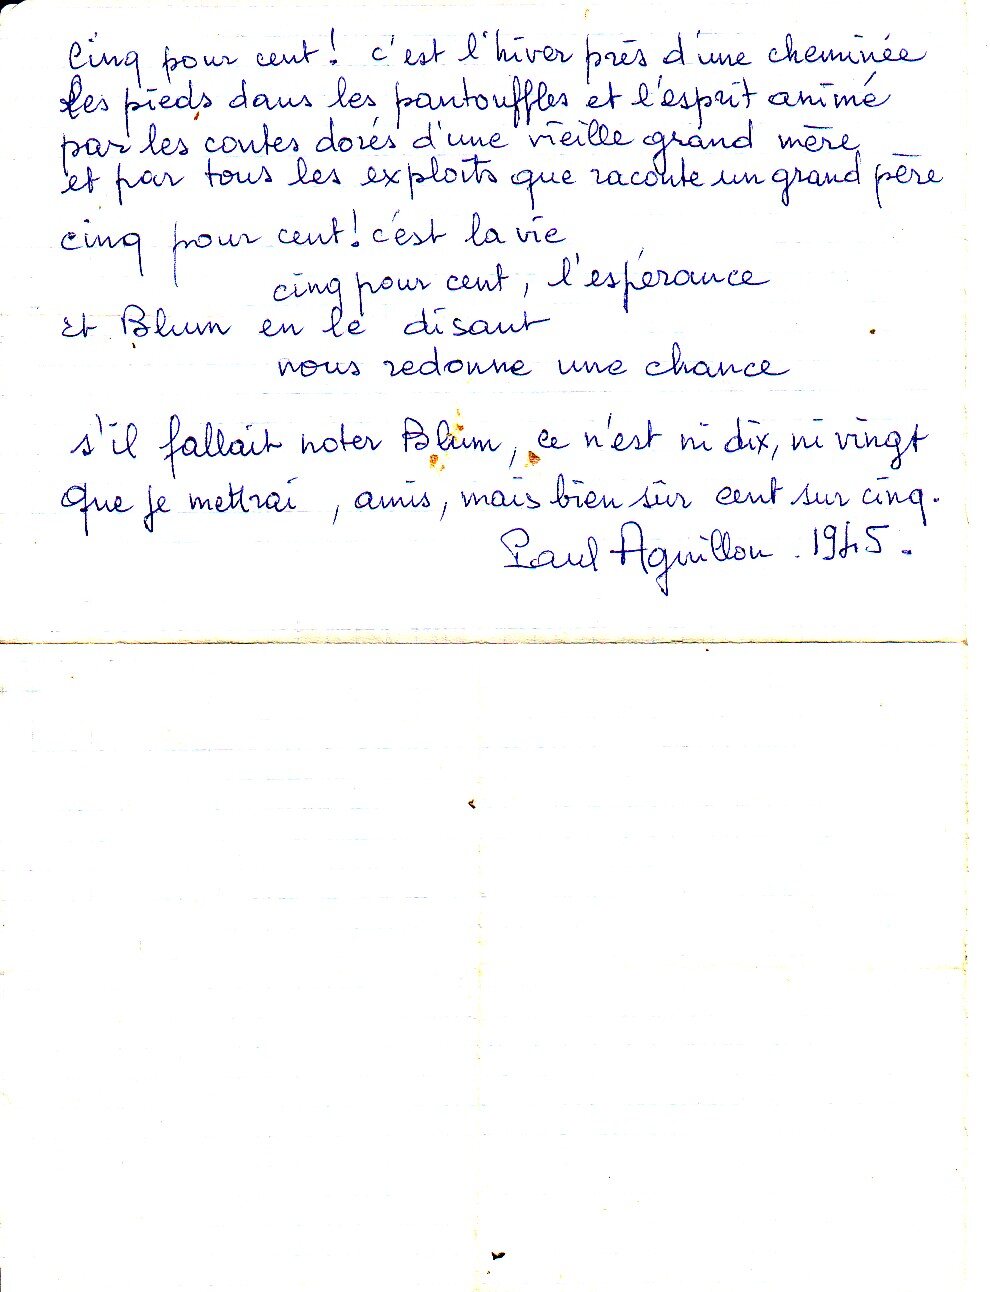 Cinq pour cent! c'est l'hiver près d'une cheminée
Les pieds dans les pantouffles et l'esprit animé
par les contes dorés d'une vieille grand mère
et par tous les exploits que raconte un grand père
cinq pour cent! c'est la vie
cinq pour cent, l'espérance
et Blum en le disant
nous redonne une chance
s'il fallait noter Blum, ce n'est ni dix, ni vingt
que je mettrai, amis, mais bien sûr cent sur cinq.
Paul Aguillon. 1945.